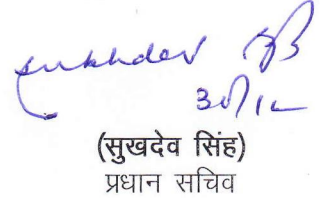 sukhdev
30/12
(सुखदेव सिंह)
प्रधान सचिव